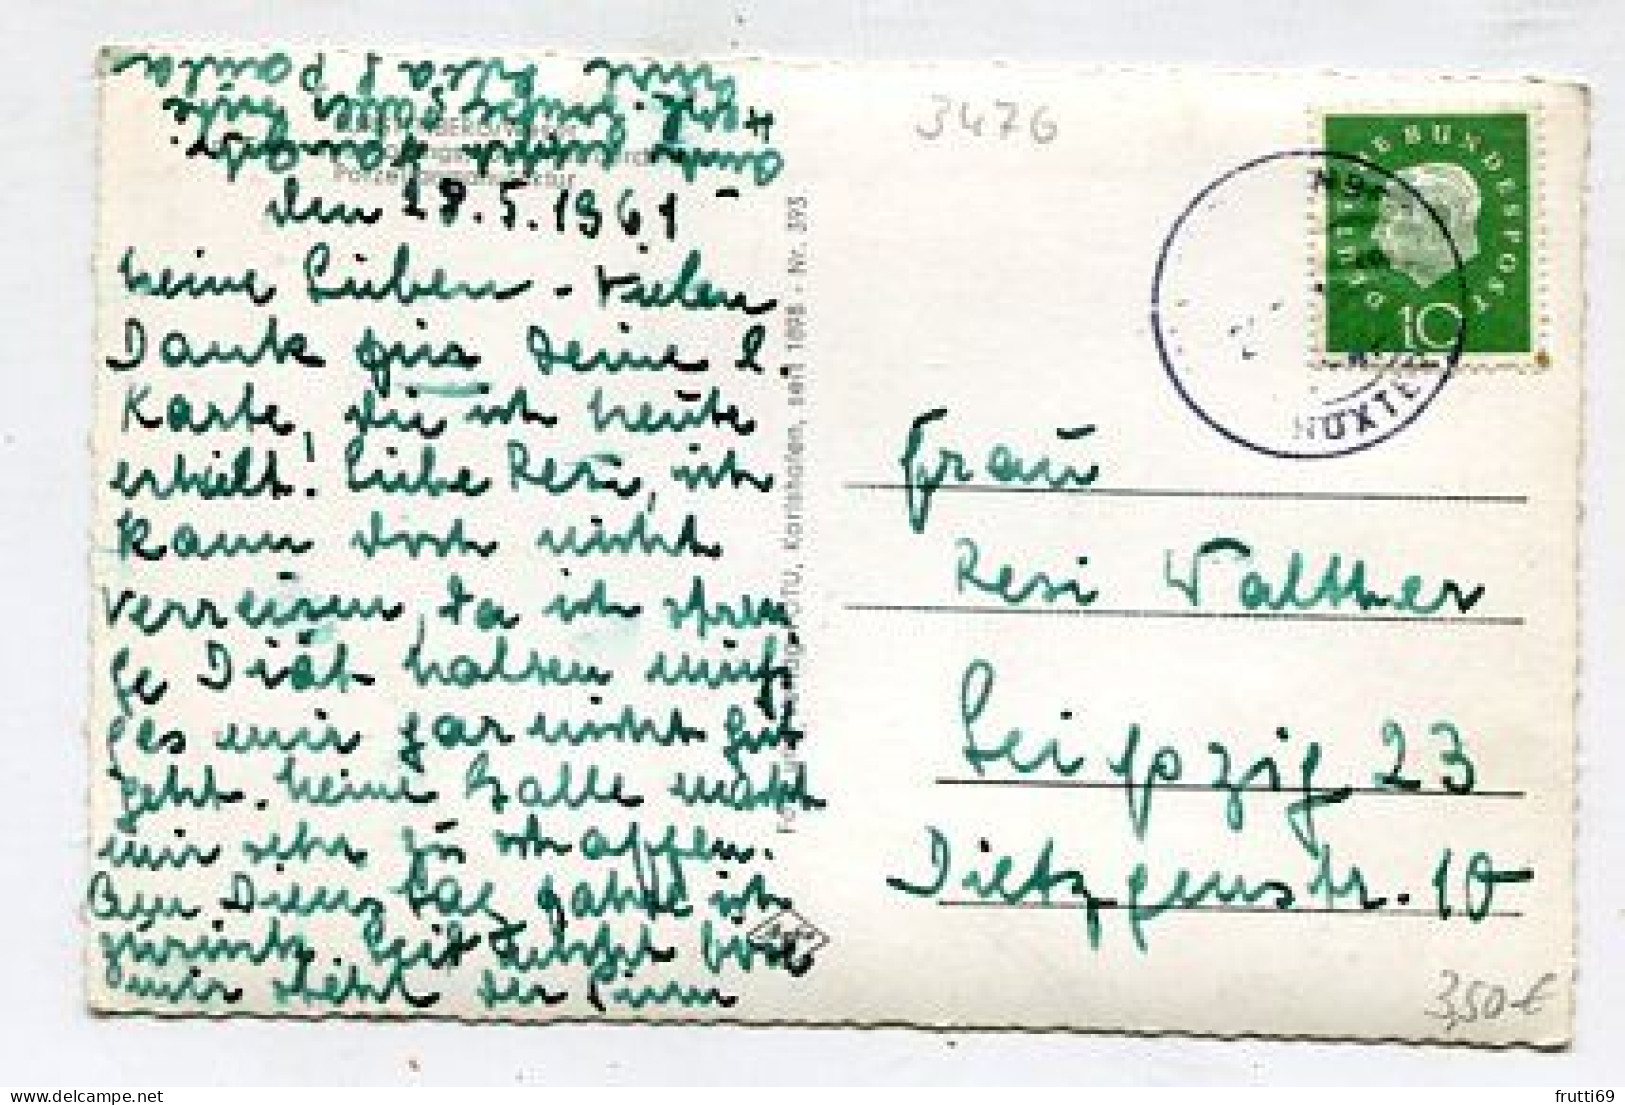 den 28.5.1961
Meine Lieben - Vielen
Dank für Deine l.
Karte, die ich heute
erhielt! Liebe Resi, ich
kann doch nicht
verreisen, da ich stren
ge Diät halten muß
(es mir gar nicht gut
geht. Meine Galle macht
mir sehr zu schaffen.
Am Dienstag fahre ich
zurück. Seit
mir steht der Sinn
3476
DEUTSCHE BUNDESPOST
10
HÖXTER
Frau
Resi Walther
Leipzig 23
Dietzgenstr. 10
3,50 €
Karlshafen, seit 1898 - Nr. 393
frutti69